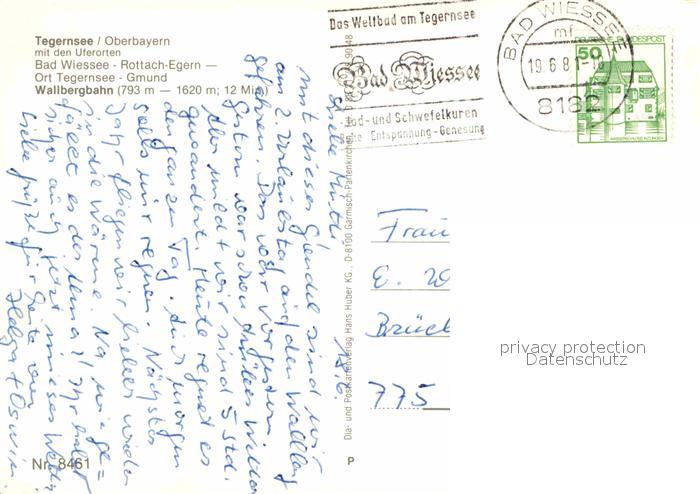 Tegernsee / Oberbayern
mit den Uferorten
Bad Wiessee - Rottach-Egern —
Ort Tegernsee - Gmund
Wallbergbahn (793 m — 1620 m; 12 Min)
Das Weltbad am Tegernsee
Bad Wiessee
Jod- und Schwefelkuren
Entspannung - Genesung
BAD WIESSEE
mf
19.6.8
8182
DEUTSCHE BUNDESPOST
50
Dia- und Postkartenverlag Hans Huber KG., D-8100 Garmisch-Partenkirchen
19.6.
Liebe Mutti,
mit dieser Gondel sind wir
am 2. Urlaubstag auf den Wallberg
gefahren. Das war vorgestern.
Gestern war schon
Aber mild + wir sind 5 Std.
gewandert. Heute regnet es
den ganzen Tag. Auch morgen
soll's nur regnen. Nächstes
Jahr fliegen wir lieber wieder
in die Wärme. Na, wie ge-
fällt es der
sicher auch jetzt mieses Wetter
Liebe Grüße für heute von
Helga + Oswin
Frau
E. W
Brück
775
privacy protection
Datenschutz
Nr. 8461
P